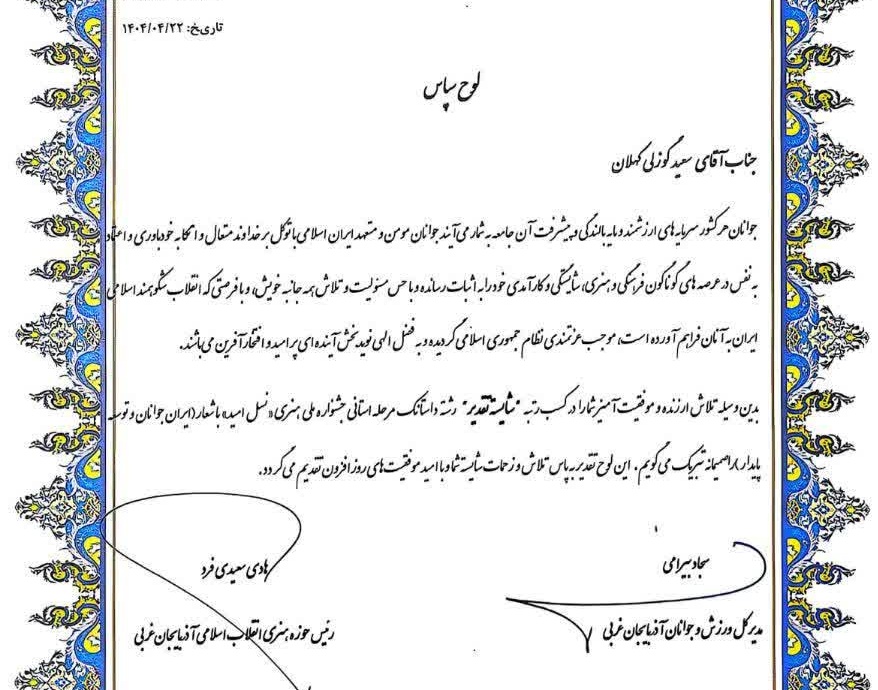 تاریخ: ۱۴۰۴/۰۴/۲۲
لوح سپاس
جناب آقای سعید گوزلی کهلان
جوانان هر کشور سرمایه های ارزشمند و مایه بالندگی و پیشرفت آن جامعه به شمار می آیند جوانان مومن و متعهد ایران اسلامی با توکل بر خداوند متعال و اتکا به خودباوری و اعتماد
به نفس در عرصه های گوناگون فرهنگی و هنری، شایستگی و کارآمدی خود را به اثبات رسانده و با حس مسئولیت و تلاش همه جانبه خویش، و با فرصتی که انقلاب شکوهمند اسلامی
ایران به آنان فراهم آورده است، موجب عزتمندی نظام جمهوری اسلامی گردیده و به فضل الهی نوید بخش آینده ای پر امید و افتخار آفرین می باشند.
بدین وسیله تلاش ارزنده و موفقیت آمیز شما را در کسب رتبه "شایسته تقدیر" رشته داستانک مرحله استانی جشنواره ملی هنری «نسل امید» با شعار (ایران جوانان و توسعه
پایدار) را صمیمانه تبریک می گویم. این لوح تقدیر به پاس تلاش و زحمات شایسته شما و با امید موفقیت های روز افزون تقدیم می گردد.
سجاد بیرامی
هادی سعیدی فرد
مدیر کل ورزش و جوانان آذربایجان غربی
رئیس حوزه هنری انقلاب اسلامی آذربایجان غربی